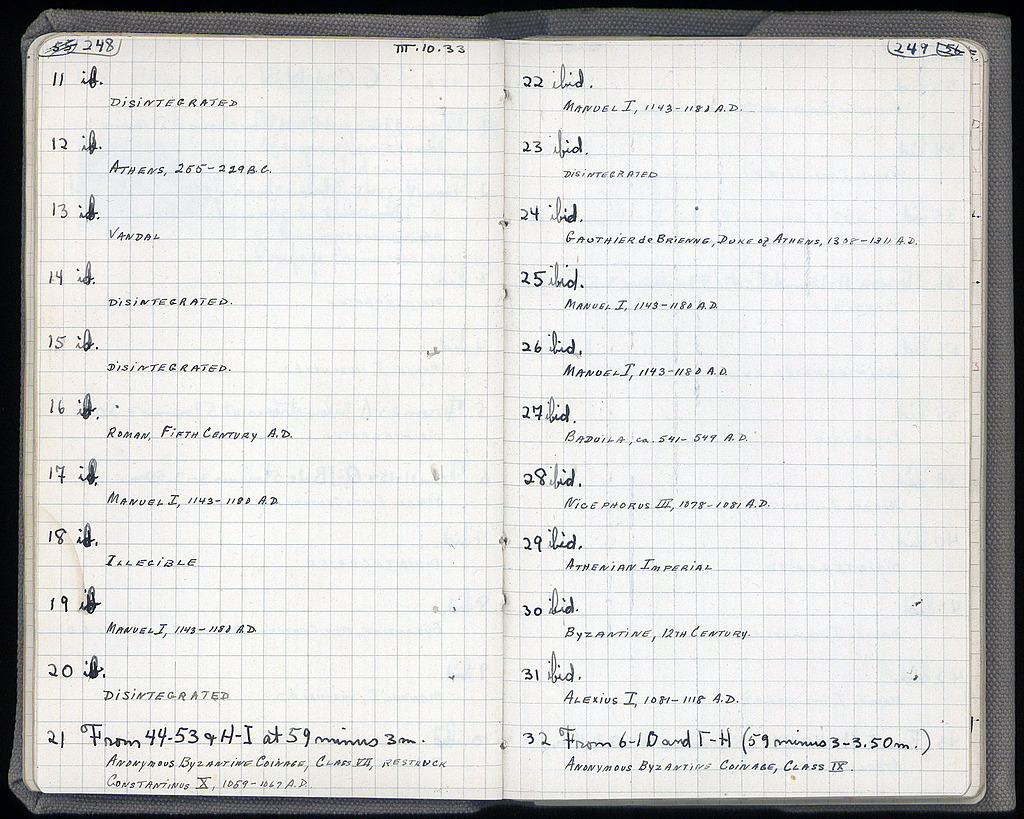 248
III.10.33
11 id.
DISINTEGRATED
12 id.
ATHENS, 255-229 B.C.
13 id.
VANDAL
14 id.
DISINTEGRATED.
15 id.
DISINTEGRATED.
16 id.
ROMAN, FIFTH CENTURY A.D.
17 id.
MANUEL I, 1143-1180 A.D.
18 id.
ILLEGIBLE
19 id
MANUEL I, 1143-1180 A.D.
20 id.
DISINTEGRATED
21 From 44-53 & H-I at 59 minus 3m.
ANONYMOUS BYZANTINE COINAGE, CLASS VII, RESTRUCK
CONSTANTINUS X, 1059-1067 A.D.
249 56
22 ibid.
MANUEL I, 1143-1180 A.D.
23 ibid.
DISINTEGRATED
24 ibid.
GAUTHIER de BRIENNE, DUKE of ATHENS, 1308-1311 A.D.
25 ibid.
MANUEL I, 1143-1180 A.D.
26 ibid.
MANUEL I, 1143-1180 A.D.
27 ibid.
BADUILA, ca. 541-549 A.D.
28 ibid.
NICEPHORUS III, 1078-1081 A.D.
29 ibid.
ATHENIAN IMPERIAL
30 ibid.
BYZANTINE, 12TH CENTURY.
31 ibid.
ALEXIUS I, 1081-1118 A.D.
32 From 6-10 and Γ-H (59 minus 3-3.50m.)
ANONYMOUS BYZANTINE COINAGE, CLASS